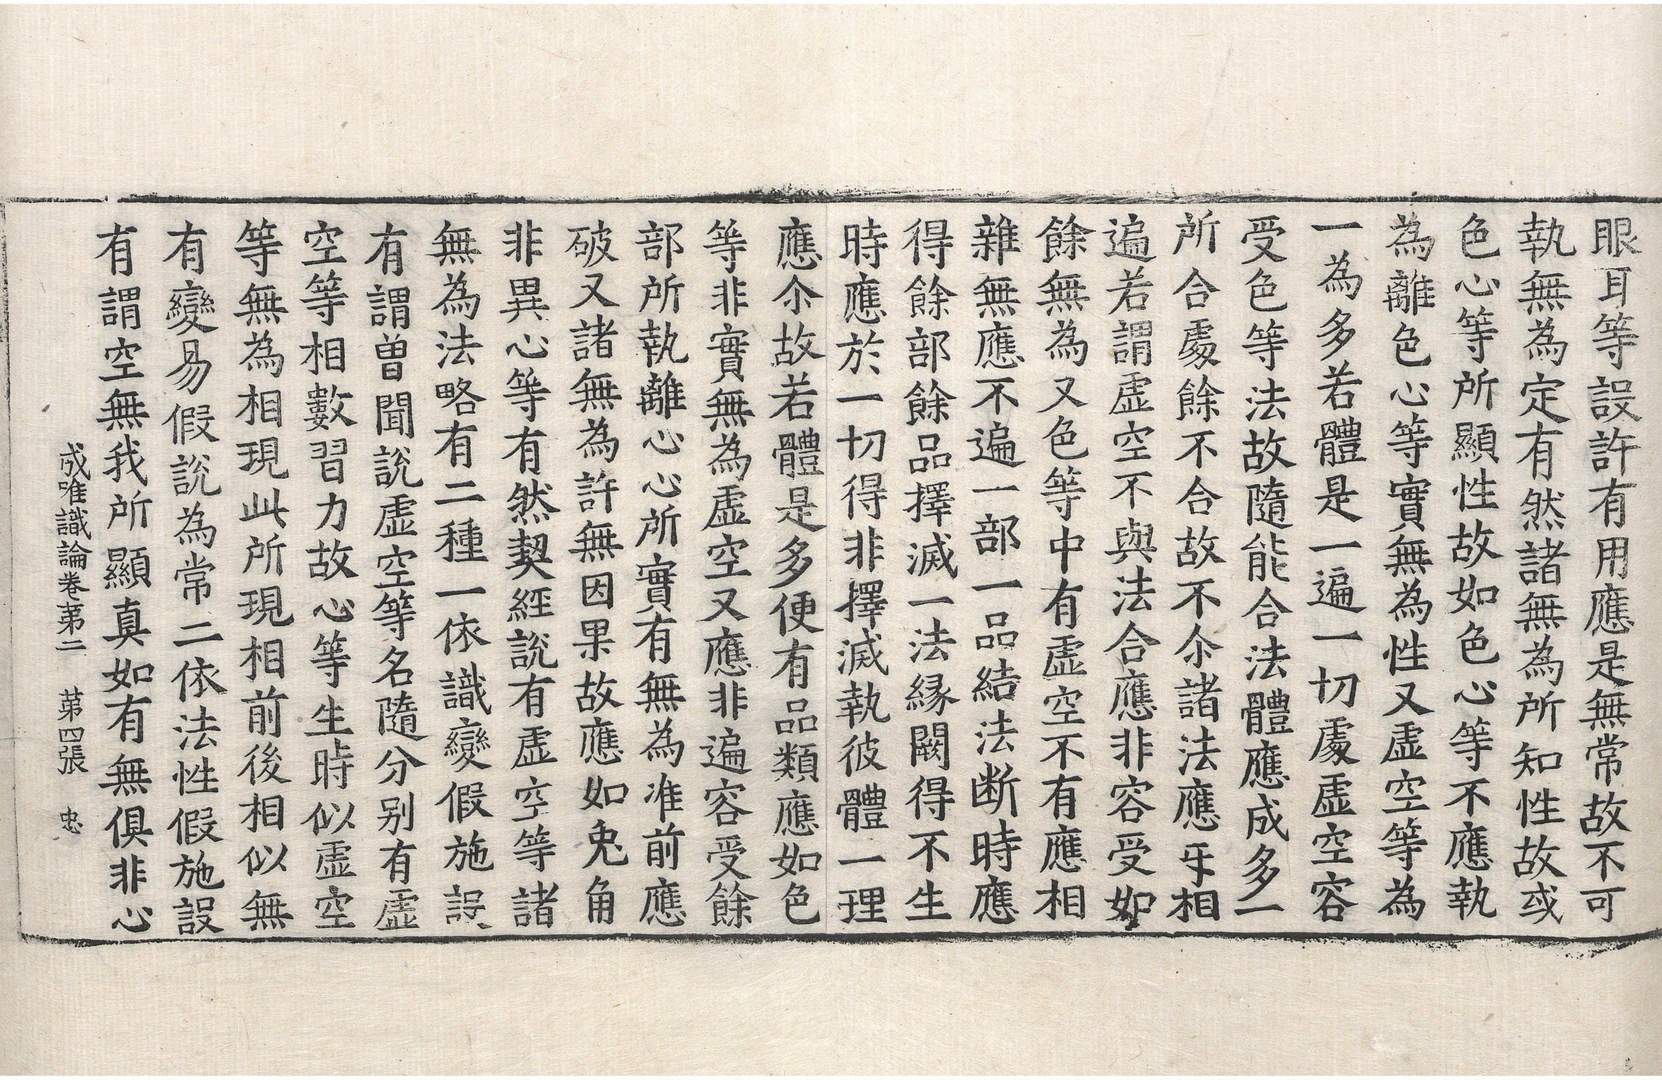 眼耳等設許有用應是無常故不可
執無為定有然諸無為所知性故或
色心等所顯性故如色心等不應執
為離色心等實無為性又虛空等為
一為多若體是一遍一切處虛空容
受色等法故隨能合法體應成多一
所合處餘不合故不尒諸法應㸦相
遍若謂虛空不與法合應非容受如
餘無為又色等中有虛空不有應相
雜無應不遍一部一品結法断時應
得餘部餘品擇滅一法縁闕得不生
時應於一切得非擇滅執彼體一理
應尒故若體是多便有品類應如色
等非實無為虛空又應非遍容受餘
部所執離心心所實有無為准前應
破又諸無為許無因果故應如兎角
非異心等有然契經說有虛空等諸
無為法略有二種一依識變假施設
有謂曾聞說虛空等名隨分別有虛
空等相數習力故心等生時似虛空
等無為相現此所現相前後相似無
有變易假說為常二依法性假施設
有謂空無我所顯真如有無俱非心
成唯識論卷苐二　苐四張　忠